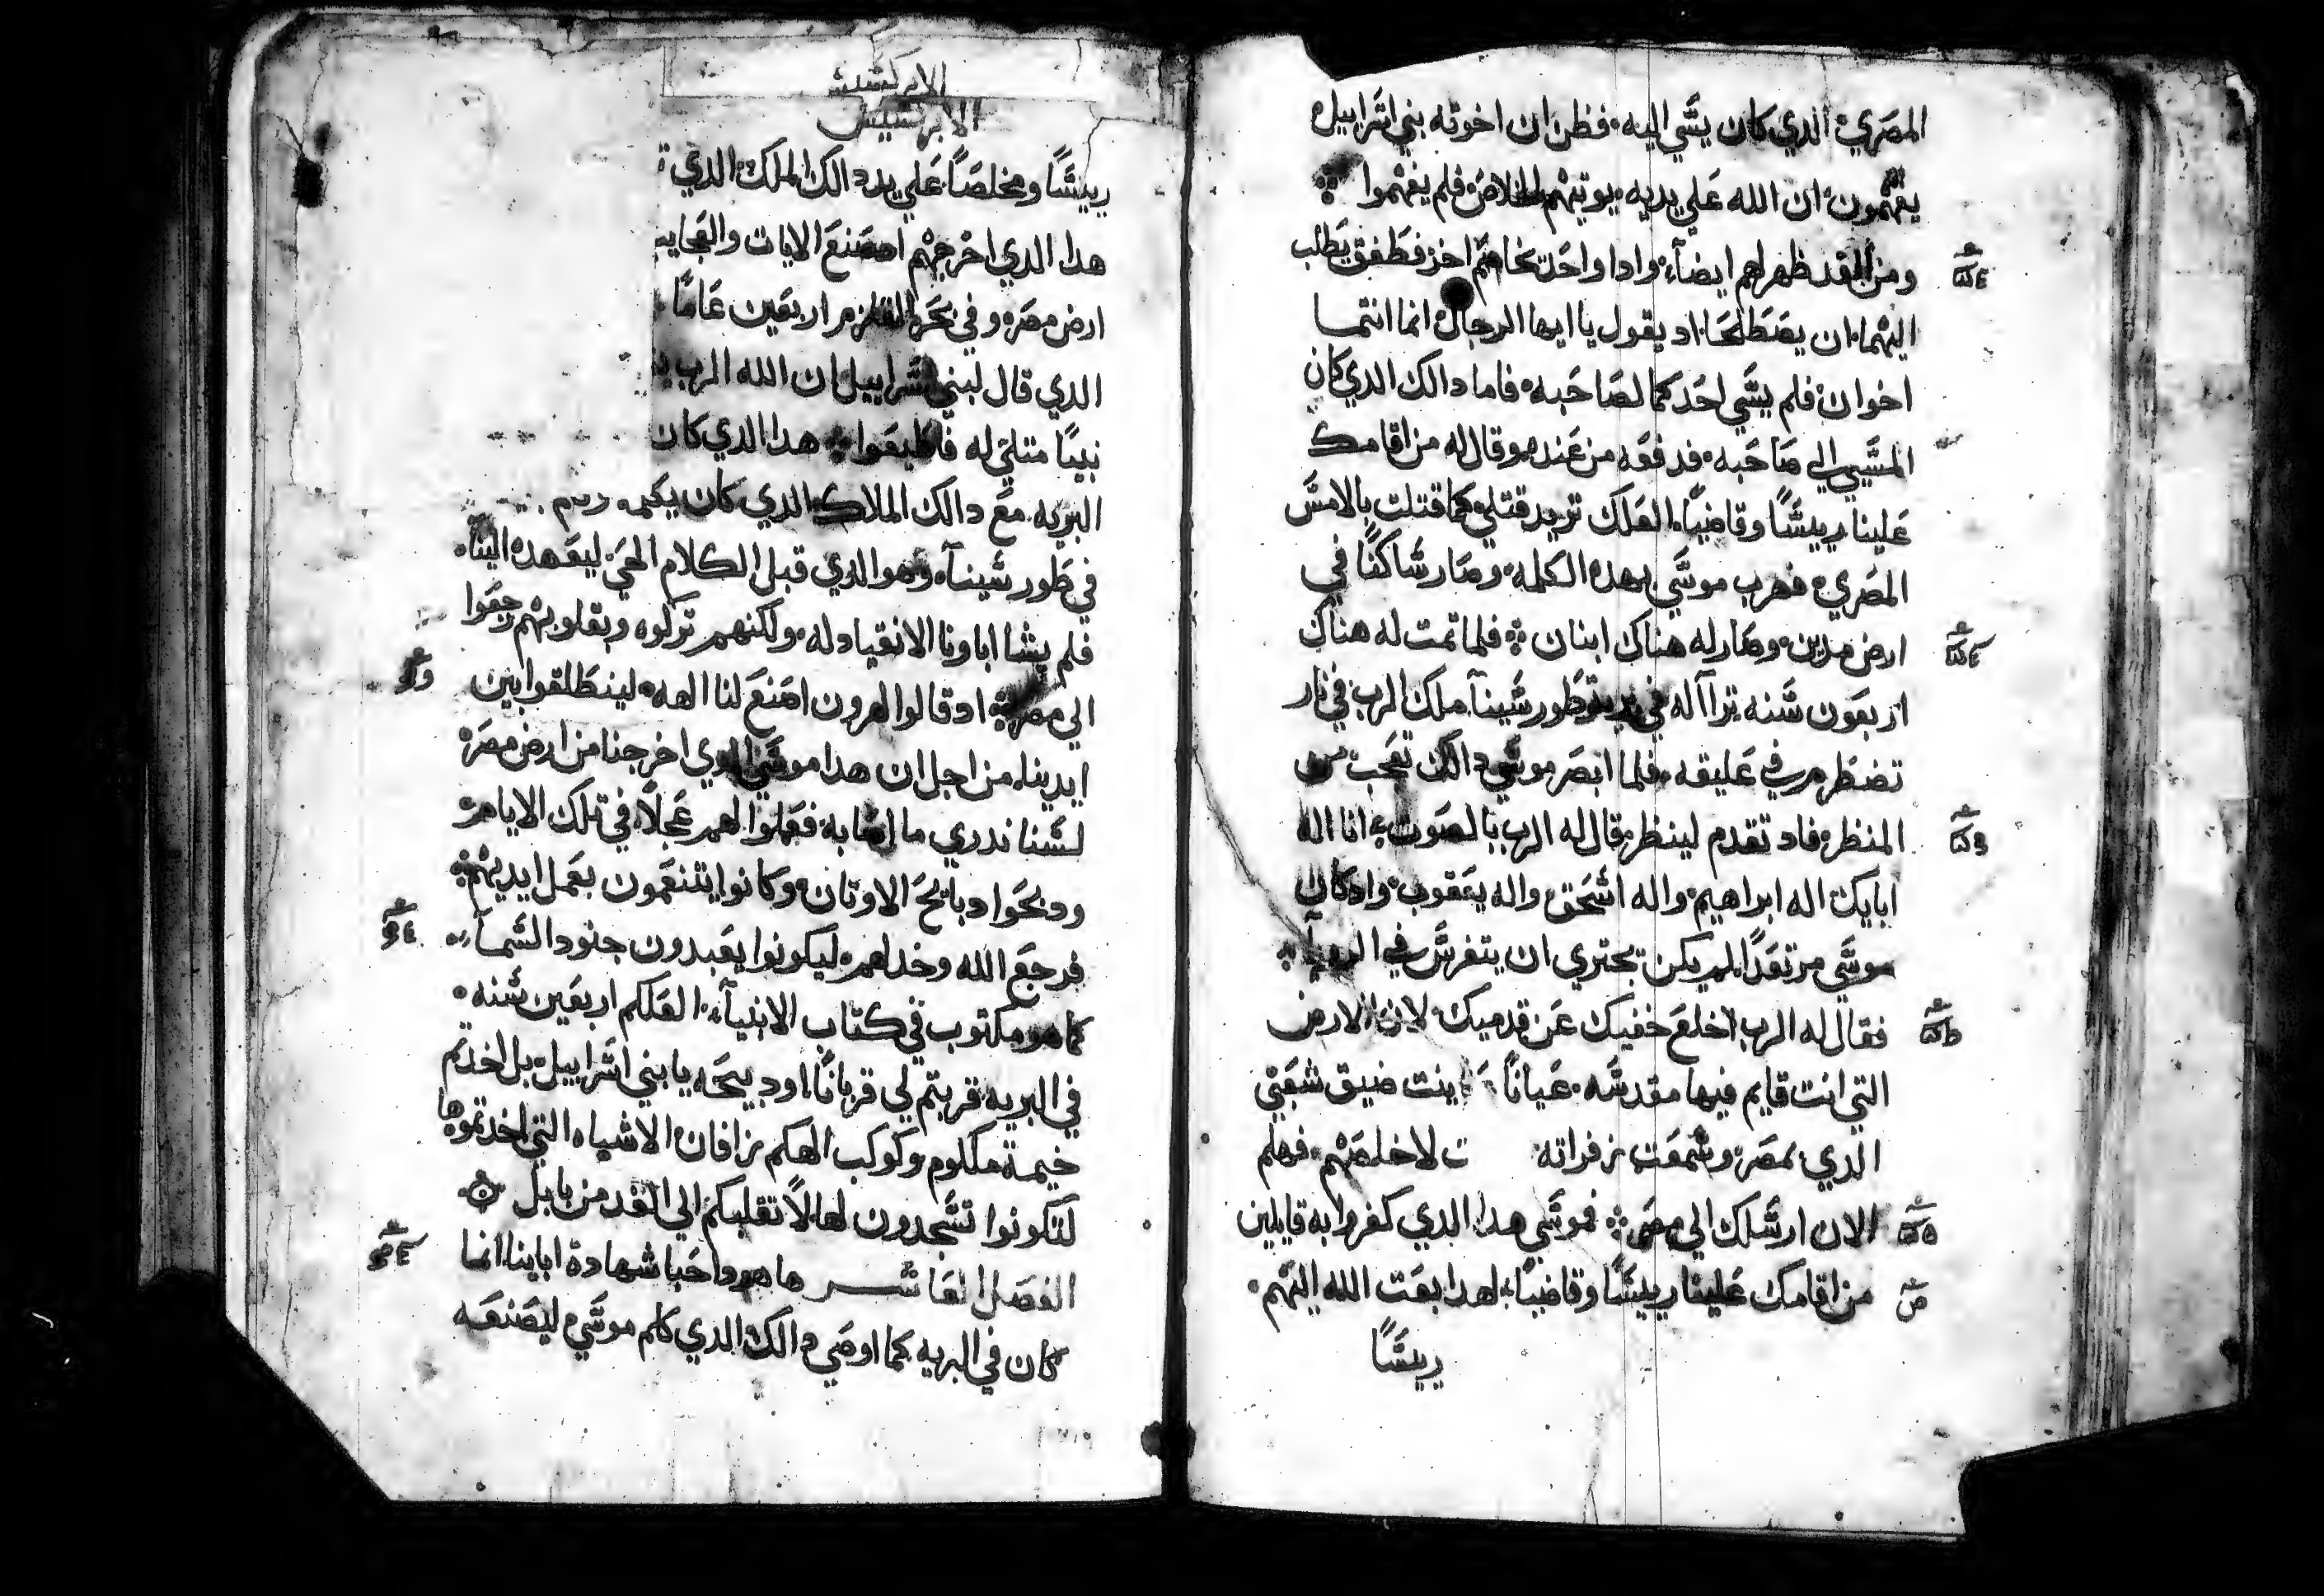 المصري الدي كان يسي اليه فظن ان اخوته بني اسراييل
يفهمون ان الله علي يديه يوتيهم الخلاص فلم يفهموا
ومن الغد ظهر لهم ايضاً وادا واحد يخاصم اخر فطفق يطلب
اليهما ان يصطلحا اد يقول يا ايها الرجال انما انتما
اخوان فلم يسي احدكما لصاحبه فاما دالك الدي كان
المسي الي صاحبه فدفعه من عنده وقال له من اقامك
علينا رييسًا وقاضيًا لعلك تريد قتلي كما قتلت بالامس
المصري فهرب موسي بهده الكلمه وصار ساكنًا في
ارض مدين وصار له هناك ابنان فلما تمت له هناك
اربعون سنه تراآ له في طور سينآ ملك الرب في نار
تضطرم في عليقه فلما ابصر موسي دالك تعجب من
المنظر فاد تقدم لينظر قال له الرب بالصوت انا اله
ابايك اله ابراهيم واله اسحق واله يعقوب واد كان
موسي مرتعدًا لم يكن يجتري ان يتفرس في الرويا
فقال له الرب اخلع خفيك عن قدميك لان الارض
التي انت قايم فيها مقدسه عيانًا عاينت ضيق شعبي
الدي بمصر وسمعت زفراته ت لاخلصهم فهلم
الان ارسلك الي مصر فموسي هدا الدي كفروا به قايلين
من اقامك علينا رييسًا وقاضيًا لهدا بعت الله اليهم
رييسًا
الابركسيس
الابركسيس
رييسًا ومخلصًا علي يد دالك الملك الدي
هدا الدي اخرجهم اد صنع الايات والعجايب
ارض مصر وفي بحر القلزم اربعين عامًا
الدي قال لبني اسراييل ان الله الرب
نبيًا متلي له فاطيعوا هدا الدي كان
البريه مع دالك الملاك الدي كان يكلمه
في طور سينآ وهو الدي قبل الكلام الحي ليعهده الينا
فلم يشا اباونا الانقياد له ولكنهم تركوه وبقلوبهم رجعوا
الي مصر اد قالوا لهرون اصنع لنا الهه لينطلقوا بين
ايدينا من اجل ان هدا موسي الدي اخرجنا من ارض مصر
لسنا ندري ما اصابه فعملوا لهم عجلًا في تلك الايام
ودبحوا دبايح الاوتان وكانوا يتنعمون بعمل ايديهم
فرجع الله وخدلهم ليكونوا يعبدون جنود السمآ
كما هو مكتوب في كتاب الانبيآ العلكم اربعين سنه
في البريه قربتم لي قربانًا او دبيحه يا بني اسراييل بل اخدتم
خيمة ملكوم وكوكب الهكم رافان الاشباه التي اخدتموها
لتكونوا تسجدون لها لانقلبكم الي ابعد من بابل
الفصل العاشر ها هودا خبا شهادة اباينا انما
كان في البريه كما اوصي دالك الدي كلم موسي ليصنعه